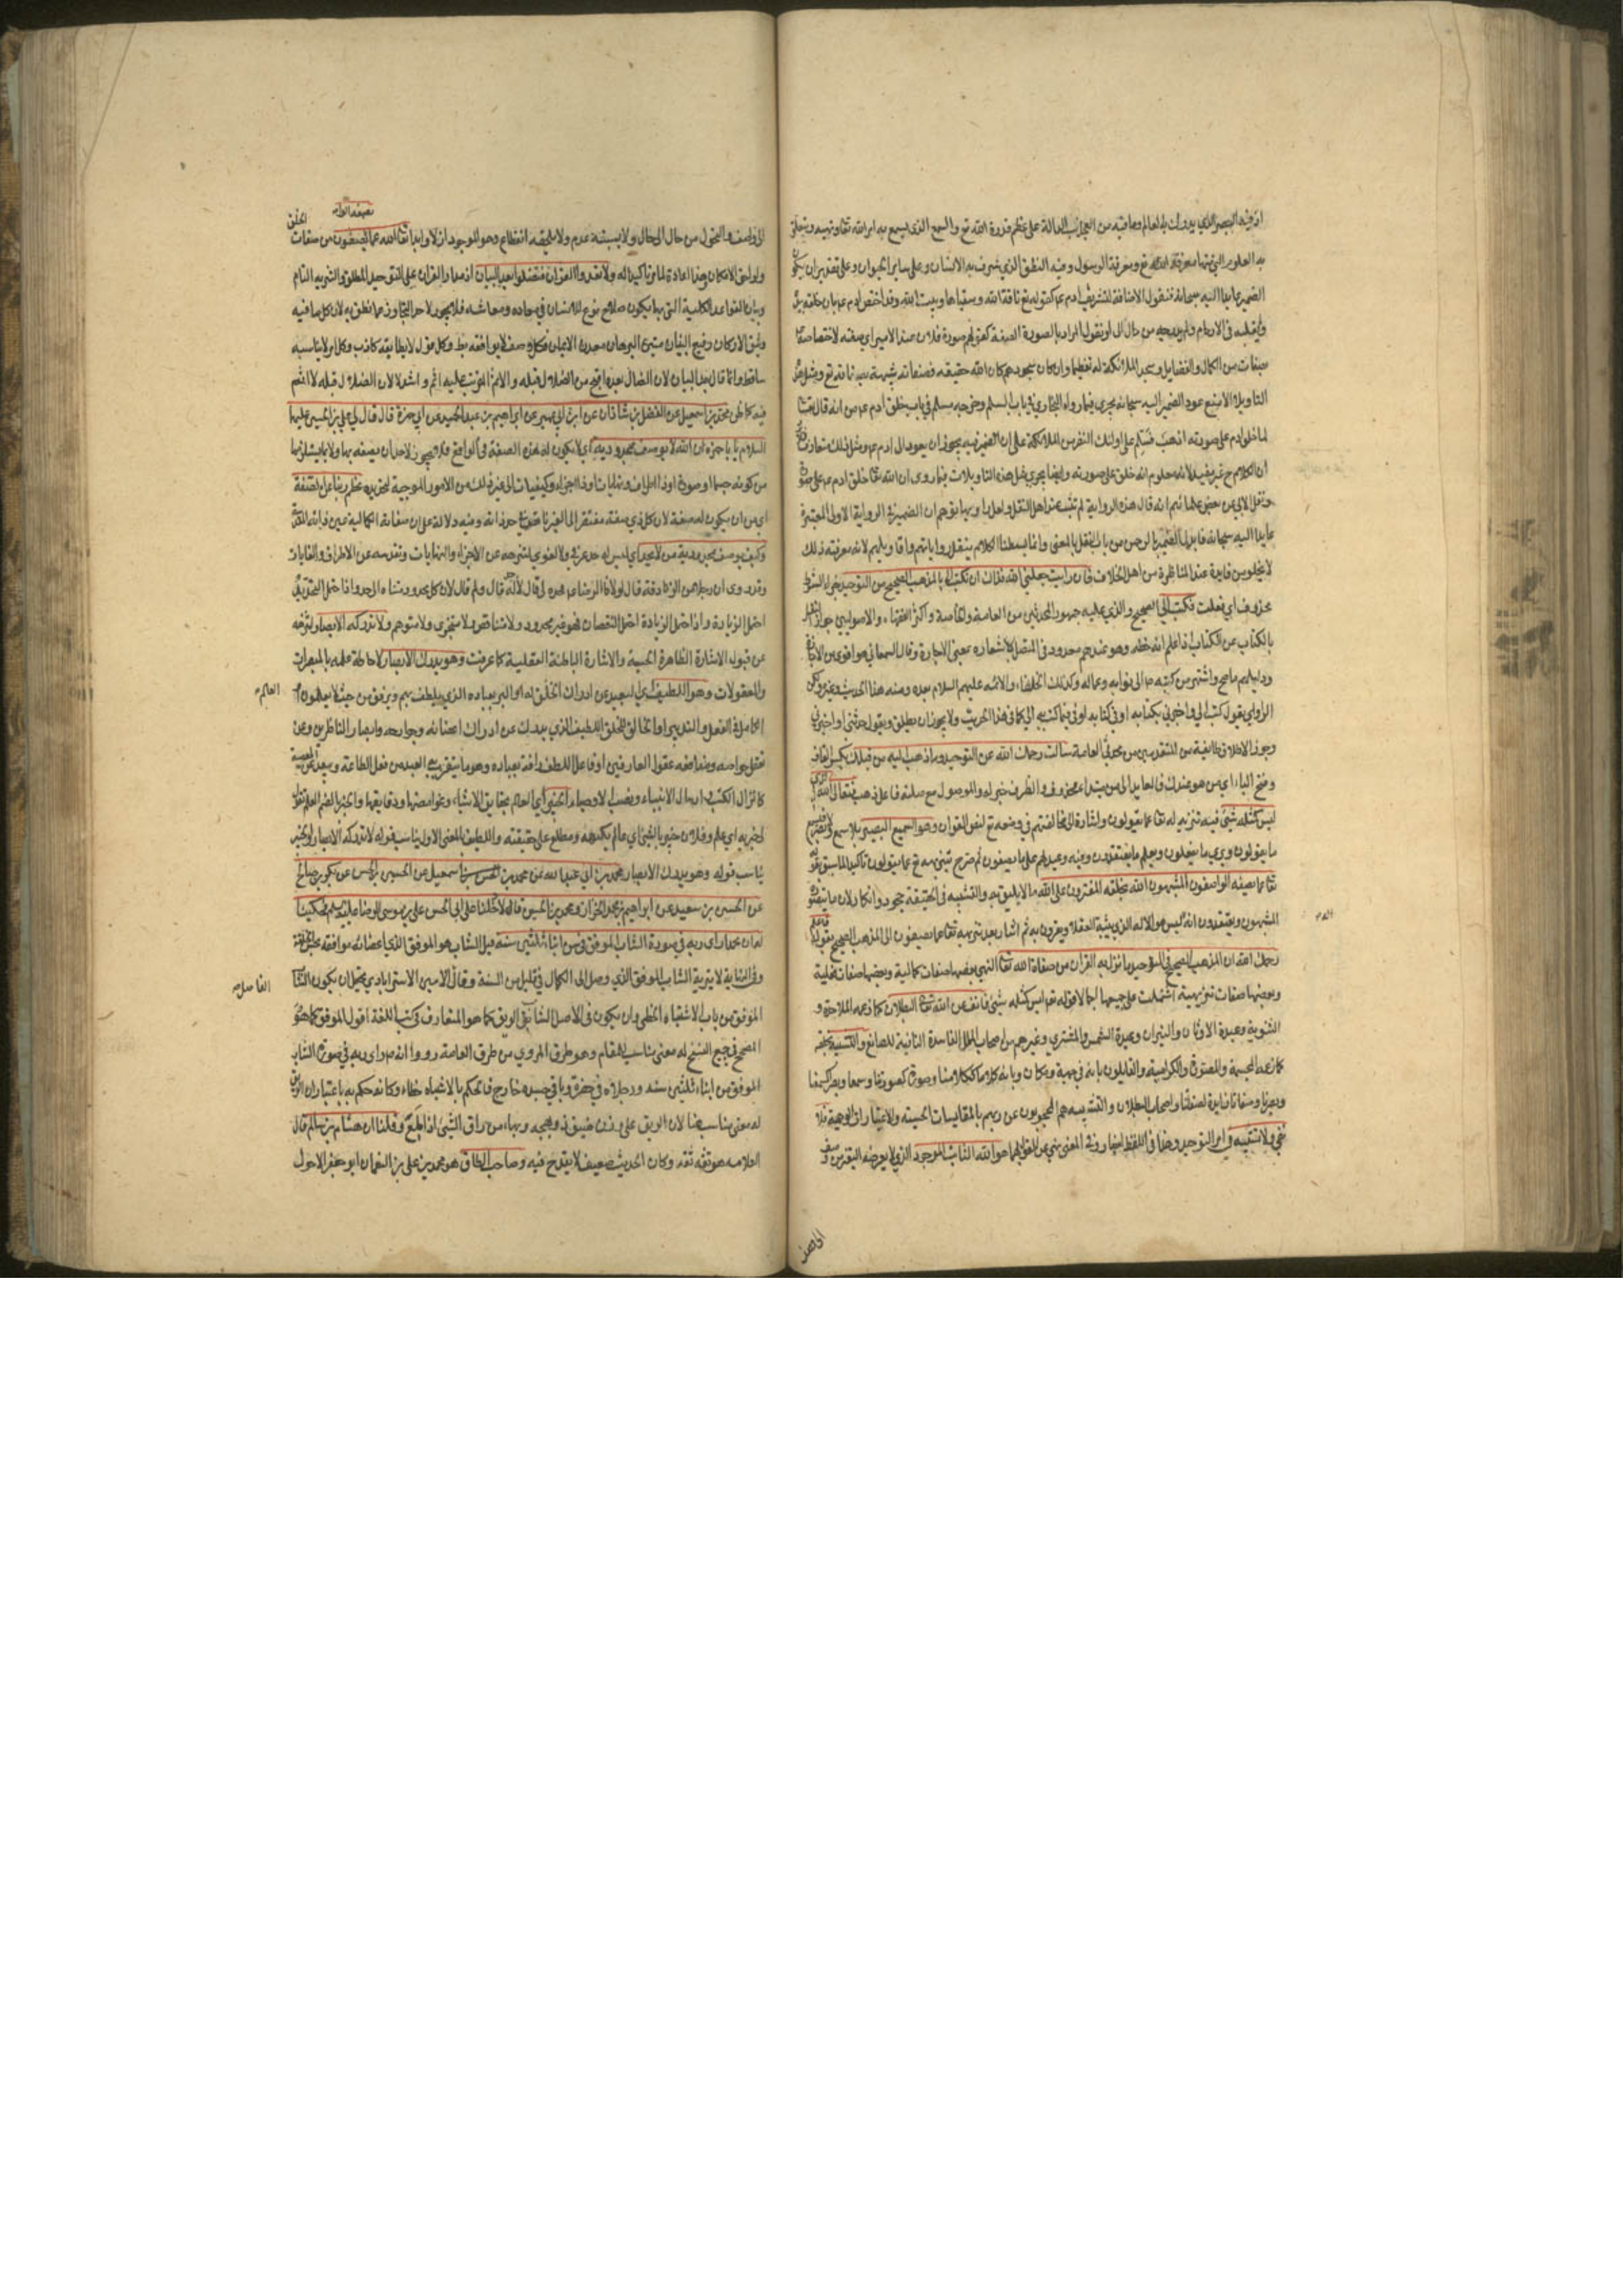 اذ فيه البصر الذي يدرك به العالم وما فيه من العجائب الدالة على عظم قدرة الله تع والسمع الذي يسمع به امر الله تعا ونهيه
به العلوم التي منها معرفة الله تع ومعرفة الرسول وفيه النطق الذي شرف به الانسان وعلى ساير الحيوان وعلى تقدير ان يكون
الضمير عايدا اليه سبحانه فنقول الاضافة لتشريف ادم عم كقوله تع ناقة الله وسقياها وبيت الله وقد اختص ادم عم بان خلقه بيده
ولم يقلبه في الارحام ولم يدرجه من حال الى او نقول المراد بالصورة الصفة كقولهم صورة فلان عند الامير اي صفته لاختصاصه
بصفات من الكمال والفضايل وسجد الملائكة له تعظيما وان كان سجودهم كان الله حقيقة
التاويلا لا يتبع عود الضمير اليه سبحانه يجري فيما رواه البخاري في باب السلم وخرجه مسلم في باب خلق ادم عم من انه قال
لما خلق ادم على صورته اذهب فسلم على اولئك النفر من الملائكة على ان الضمير فيه يجوز ان يعود الى ادم عم ومثل ذلك متعارف
ان الكلام ح غير مفيد لانه معلوم انه خلق على صورته وايضا يجري مثل هذه التاويلات فيما روى ان الله تعا خلق ادم عم على صورة
ونقل الابي عن بعض علمائهم انه قال هذه الرواية لم تثبت عند اهل النقل ولعل راويها توهم ان الضمير في الرواية الاولى المعتبرة
عايدا اليه سبحانه فابدل الضمير بالرحمن من باب النقل بالمعنى وانما بسطنا الكلام بنقل رواياتهم واقاويلهم لانه معرفته ذلك
لا يخلو من فايدة عند المناظرة مع اهل الخلاف فان رايت جعلني الله فداك ان تكتب الي بالمذهب الصحيح من التوحيد جزاء الشرط
محذوف اي فعلت فكتب الي الصحيح والذي عليه جمهور المحدثين من العامة والخاصة واكثر الفقهاء والاصوليين جواز العمل
بالكتاب عن الكتاب اذا علم انه خطه وهو عندهم معدود في المتصل لاشعاره بمعنى الاجازة وقال السمعاني هو اقوى من الاجازة
ودليلهم ما صح واشتهر من كتبه ص الى نوابه وعماله وكذلك الخلفاء والائمة عليهم السلام بعده ومنه هذا الحديث وغيره ولكن
الراوي يقول كتب الي واخبرني بكتابه او في كتابه او فيما كتب به الي كما في هذا الحديث ولا يجوز ان يطلق ويقول حدثني او اخبرني
وجوز الاطلاق طايفة من المتقدمين من محدثي العامة سالت رحمك الله عن التوحيد وما ذهب اليه من قبلك بكسر القاف
وفتح الباء اي من هو عندك فالعايد الى من مبتداء محذوف والظرف خبر له والموصول مع صلته فاعل ذهب فتعالى الله الذي
ليس كمثله شئ فيه تنزيه له تعا عما يقولون واشارة الى مخالفتهم في وصفه تع لنص القران وهو السميع البصير
ما يقولون ويرى ما يفعلون ويعلم ما يعتقدون وفيه وعيد لهم على ما يصفون ثم صرح بتنزيهه تع عما يقولون تاكيدا لما سبق بقوله
تعا عما يصفه الواصفون المشبهون الله بخلقه المفترون على الله ما لا يليق به والتشبيه في الحقيقة جحود وانكار لان ما يصفه
المشبهون ويعتقدون انه ليس هو الاله الذي يثبته العقلاء ويقرون به ثم اشار بعد تنزيهه تعا عما يصفون الى المذهب الصحيح بقوله فاعلم
رحمك الله ان المذهب الصحيح في التوحيد ما نزل به القران من صفات الله تعا التي بعضها صفات كمالية وبعضها صفات فعلية
وبعضها صفات تنزيهية اشتملت على جميعها اجمالا قوله تع ليس كمثله شئ فانف عن الله تعا البطلان كما زعمه الملاحدة و
الثنوية وعبدة الاوثان والنيران وعبدة الشمس والمشتري وغيرهم من اصحاب الملل الفاسدة النافية للصانع والتشبيه بخلقه
كما زعمه المجسمة والمصورة والكرامية والقايلون بانه في جهة ومكان وبانه كلاما ككلامنا وصورة كصورتنا وسمعا وبصرا كسمعنا
وبصرنا وصفاتا زايدة لصفتنا واصحاب البطلان والتشبيه هم المحجوبون عن ربهم بالمقايسات الحسية والاعتبارات الوهمية فلا
نفي ولا تشبيه في امر التوحيد وهذا في اللفظ اخبار وفي المعنى نهي عن القول بهما هو الله الثابت الموجود الذي لا يعرضه التغير من وصف
الى وصف والتحول من حال الى حال ولا يسبقه عدم ولا يلحقه انقطاع وهو الموجود ازلا وابدا تعا الله عما يصفه الواصفون من صفات الخلق
ولواحق الامكان وهذا اعادة لما مر تاكيدا له ولا تعدوا القران فتضلوا بعد البيان اذ مدار القران على التوحيد المطلق والتنزيه التام
وبيان القواعد الكلية التي بها يكون صلاح نوع الانسان في معاده ومعاشه فلا يجوز لاحد التجاوز عما نطق به لان كل ما فيه
وثيق الاركان رفيع البنيان متين البرهان معدن الايمان فكل وصف لا يوافقه بط وكل قول لا يطابقه كاذب وكل امر لا يناسبه
ساقط وانما قال بعد البيان لان الضلال بعده اقبح من الضلال قبله والاثم المترتب عليه اتم واشد لان الضلال قبله لا اثم
فيه كما ظن محمد بن اسمعيل عن الفضل بن شاذان عن ابن ابي عمير عن ابراهيم بن عبد الحميد عن ابي حمزة قال قال لي علي بن الحسين عليهما
السلام يا با حمزة ان الله لا يوصف بمحدودية اي لا يكون له هذه الصفة في الواقع فلا يجوز لاحد ان يصفه بها ولا بما يشابهها
من كونه جسما او صورة او ذا اطراف ونهايات او ذا اجزاء وكيفيات الى غير ذلك من الامور الموجبة لتحديده عظم ربنا عن الصفة
اي من ان يكون له صفة لان كل ذي صفة مفتقر الى الغير وفيه دلالة على ان صفاته الكمالية عين ذاته المقدسة
وكيف يوصف بمحدودية من لا يحد اي ليس له حد عرفي ولا لغوي لتنزهه عن الاجزاء والنهايات وتقدسه عن الاطراف والغايات
وقد روى ان رجلا من الزنادقة قال لمولانا الرضا عم حده لي قال لا حد له قال ولم قال لان كل محدود متناه الى حد واذا احتمل التحديد
احتمل الزيادة واذا احتمل الزيادة احتمل النقصان فهو غير محدود ولا متناقص ولا متجزي ولا متوهم ولا تدركه الابصار لتنزهه
عن قبول الاشارة الظاهرة الحسية والاشارة الباطنة العقلية كما عرفت وهو يدرك الابصار لاحاطة علمه بالمبصرات
والمعقولات وهو اللطيف اي البعيد عن ادراك الخلق له او البر بعباده الذي يلطف بهم ويرفق من حيث لا يعلمون او العالم
الكامل في الفعل والتدبير او الخالق للخلق اللطيف الذي يبعدك عن ادراك اعضائه وجوارحه وابصار الناظرين وعن
تعقل خواصه ومنافعه عقول العارفين او فاعل اللطف رافة بعباده وهو ما يتقرب به العبد من فعل الطاعة ويبعد عن المعصية
كانزال الكتب وارسال الانبياء ونصب الاوصياء الخبير اي العالم بحقايق الاشياء وغوامضها ودقايقها والخبر بالضم العلم تقول
لي خبر به اي علم وفلان خبير بالشئ اي عالم بكنهه ومطلع على حقيقته واللطيف بالمعنى الاول يناسب قوله لا تدركه الابصار والخبير
يناسب قوله وهو يدرك الابصار محمد بن ابي عبد الله عن محمد بن اسمعيل عن الحسين بن الحسن عن بكر بن صالح
عن الحسين بن سعيد عن ابراهيم بن محمد الخزاز ومحمد بن الحسين قالا دخلنا على ابي الحسن علي بن موسى الرضا عليه السلم فحكينا
له ان محمدا راى ربه في صورة الشاب الموفق في سن ابناء ثلثين سنة قيل الشاب هو الموفق الذي اعضائه موافقة بحسن الخلقة
وفي النهاية لابن اثير الشاب الموفق الذي وصل الى الكمال في قليل من السنة وقال الامين الاسترابادي يحتمل ان يكون الفاضل
الموفق من باب الاشتباه الخطي وان يكون في الاصل الشاب الريق كما هو المتعارف في كتب اللغة اقول الموفق كما هو
المصحح في جميع النسخ له معنى يناسب المقام وهو طرق المروي من طرق العامة رووا انه ص راى ربه في صورة الشاب
الموفق من ابناء ثلثين سنة ورجلاه في خضرة وباقي جسده خارج فالحكم بالاشتباه خطاء وكانه حكم به باعتبار ان الريق
له معنى مناسب هنا لان الريق على وزن ضيق ذو بهجة وبهاء من راق الشئ اذا لمع وقلنا ان هشام بن سالم قال
العلامه هو ثقه ثقه وكان الحديث ضعيف لا يقدح فيه وصاحب الطاق هو محمد بن علي بن النعمان ابو جعفر الاحول